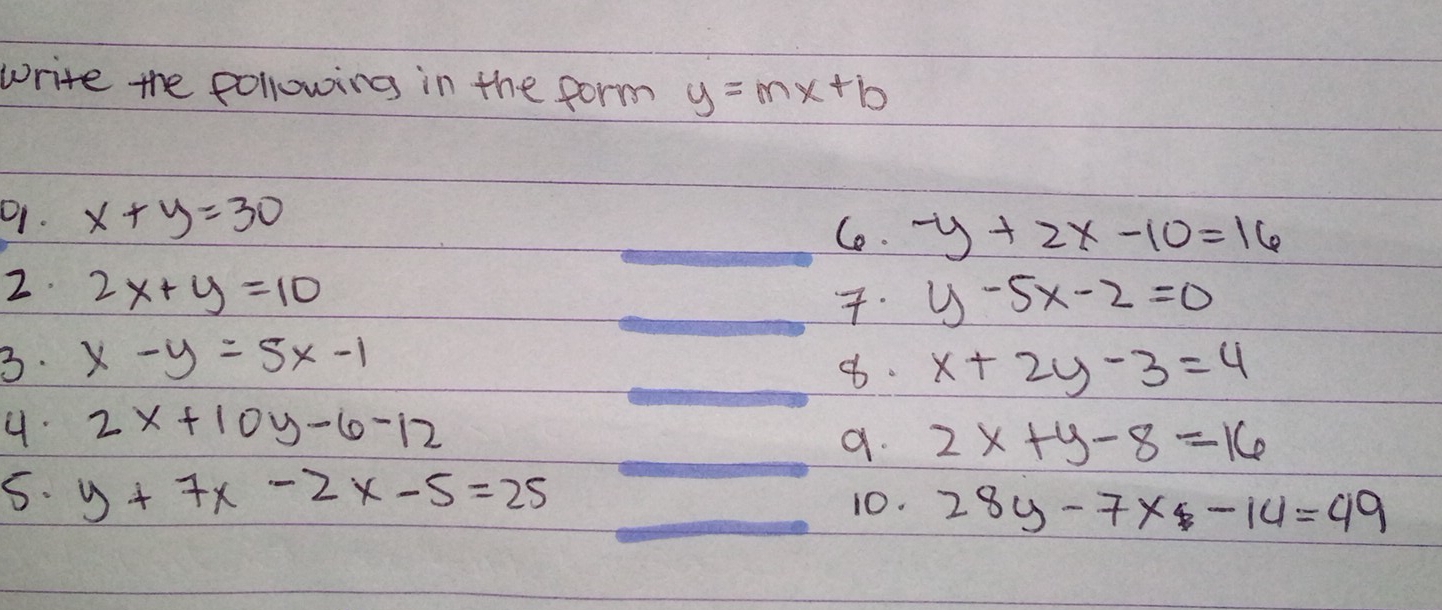 write the following in the form y = mx+b
01. x + y = 30
2. 2x + y = 10
3. x - y = 5x - 1
4. 2x + 10y - 6 - 12
5. y + 7x - 2x - 5 = 25
6. -y + 2x - 10 = 16
7. y - 5x - 2 = 0
8. x + 2y - 3 = 4
9. 2x + y - 8 = 16
10. 28y - 7x - 14 = 49